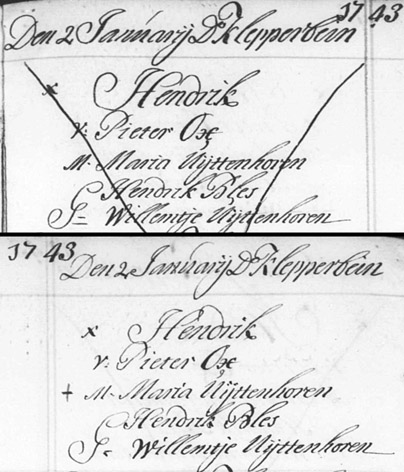 1743
Den 2 Januarij Ds Klepperbein
x Hendrik
v: Pieter Oxe
M: Maria Uijttenhoren
G Hendrik Bles
G= Willemtje Uijttenhoren
1743
Den 2 Januarij Ds Klepperbein
x Hendrik
v: Pieter Oxe
+ M: Maria Uijttenhoren
G Hendrik Bles
G= Willemtje Uijttenhoren